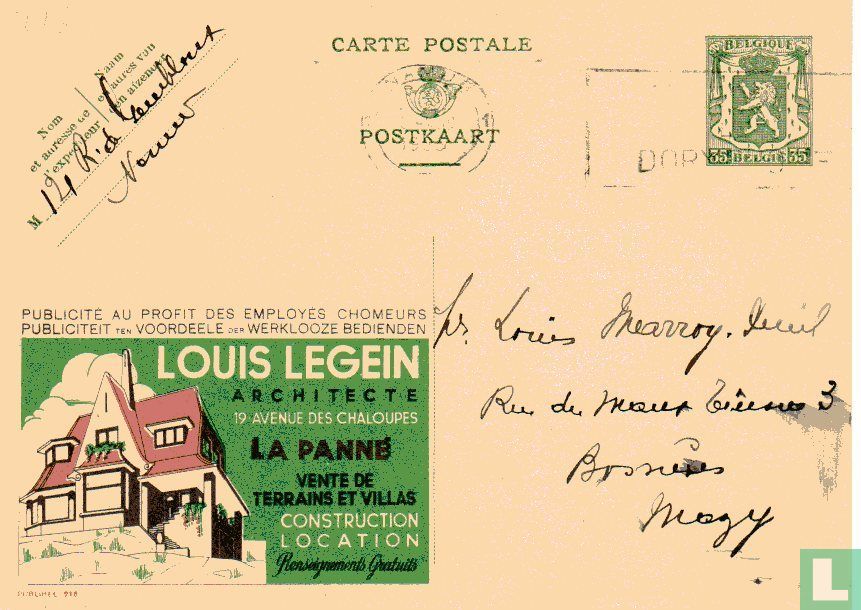 CARTE POSTALE
POSTKAART
BELGIQUE
35 BELGIE 35
Nom
et adresse de
d'expéditeur
Naam
en adres van
den afzender
M 121 R. de Gembloux
Namur
Louis Marroy
Rue du
3
Bossières
Mazy
PUBLICITÉ AU PROFIT DES EMPLOYÉS CHOMEURS
PUBLICITEIT TEN VOORDEELE DER WERKLOOZE BEDIENDEN
LOUIS LEGEIN
ARCHITECTE
19 AVENUE DES CHALOUPES
LA PANNE
VENTE DE
TERRAINS ET VILLAS
CONSTRUCTION
LOCATION
Renseignements Gratuits
PUBLIBEL 918
L